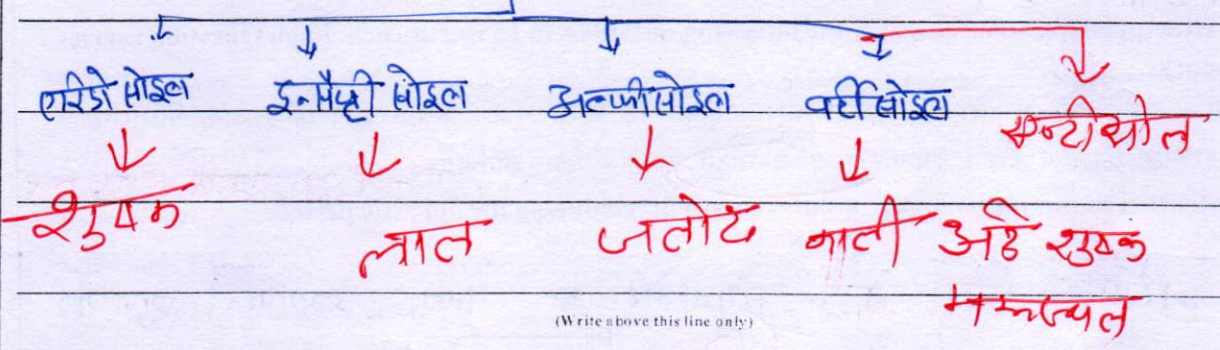 एरिडो सोइल इन्सैप्टी सोइल अल्फीसोइल वर्टी सोइल एन्टीसोल
शुष्क लाल जलोढ काली अर्द्ध शुष्क
मरूस्थल
(Write above this line only)